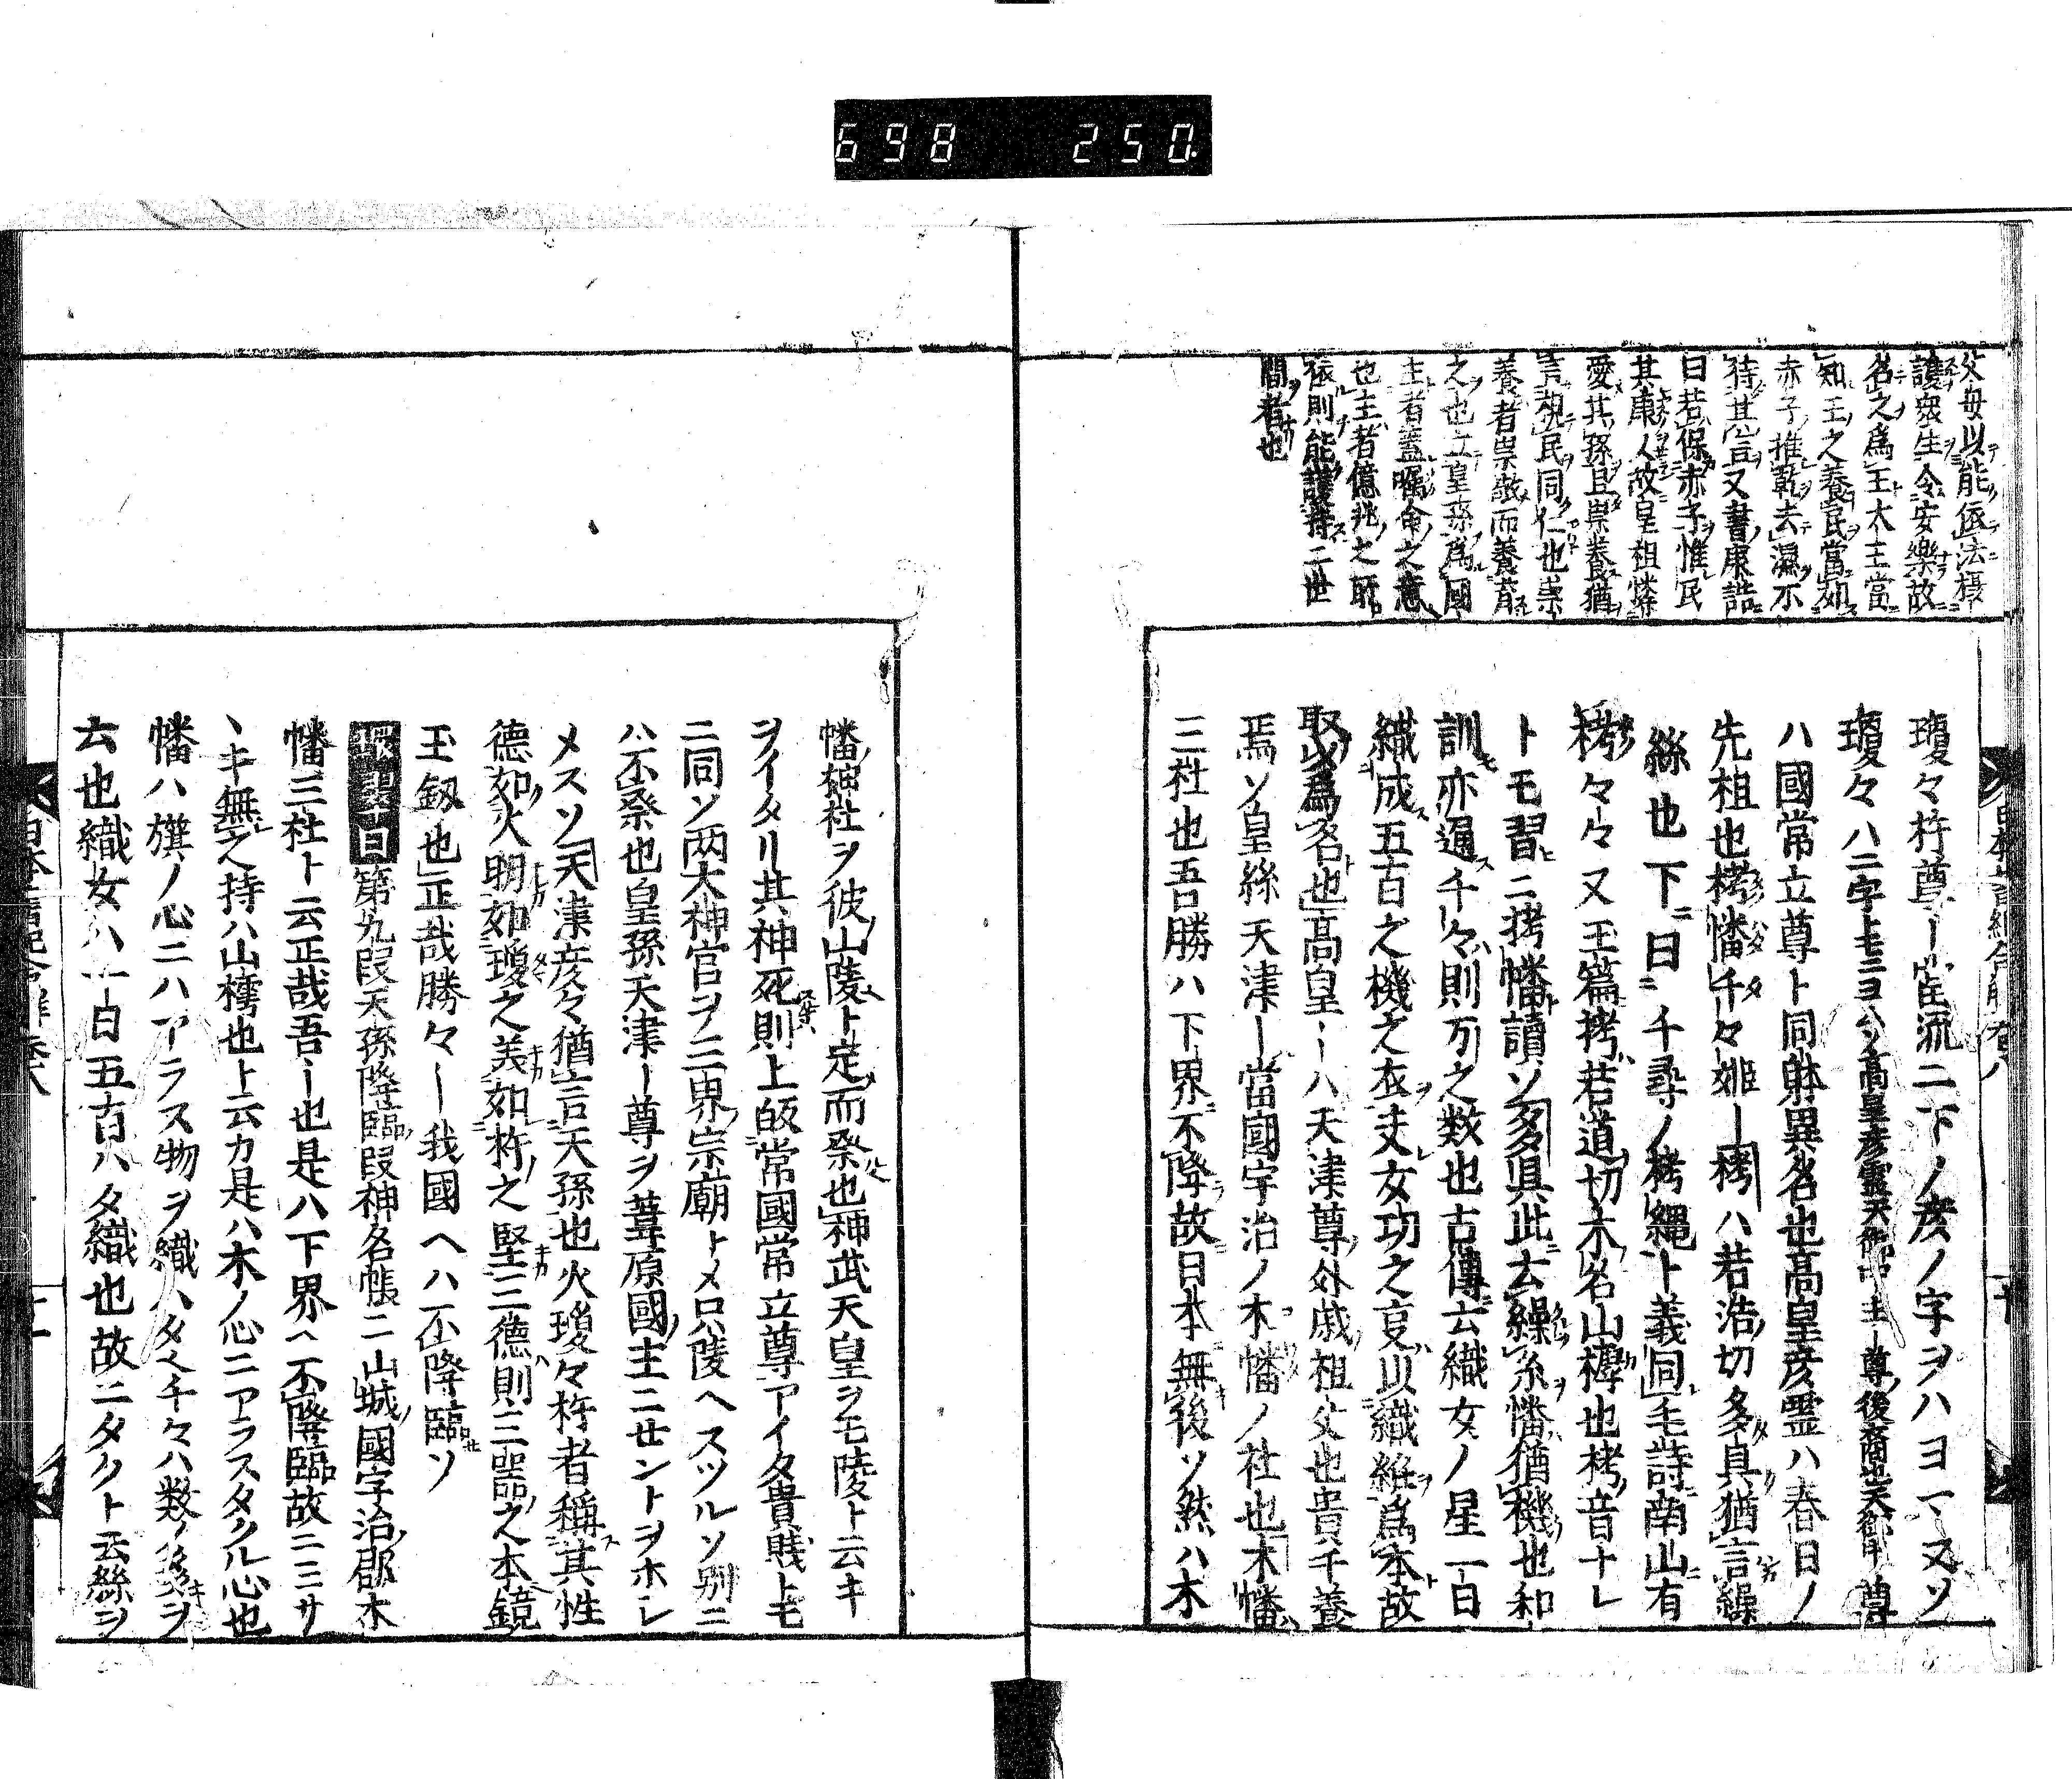 698 250.
父母以能依法摂
護衆生令安樂故
名之為王大王當
知王之養民當如
赤子推乾去濕不
待其言又書康誥
曰若保赤子惟民
其康人故皇祖憐
愛其孫且崇養猶
言視民同仁也崇
養者崇敬而養育
之也立皇孫為國
主者蓋嘱命之意
也主者億兆之所
依則能護持二世
間者也
瓊々杵尊ー當流ニ下ノ彦ノ字ヲハヨマヌソ
瓊々ハ二字トモニヨムソ高皇彦靈天御中主ー尊後裔也天御中尊
ハ國常立尊ト同躰異名也髙皇彦霊ハ春日ノ
先祖也栲幡千々姫ー栲ハ若浩切多具猶言繰
絲也下ニ曰千尋ノ栲縄ト義同毛詩南山有
栲々々又玉篇栲若道切木名山樗也栲音ナレ
トモ習ニ拷幡讀ソ多具此云繰糸幡猶機也和
訓亦通千々則万之数也古傳云織女ノ星一日
織成五百之機之衣丈女功之㕝以織絍為本故
取以為名也髙皇ーハ天津尊外戚祖父也貴千養
焉ソ皇絲天津ー當國宇治ノ木幡ノ社也木幡
三社也吾勝ハ下界不降故日本無後ソ然ハ木
幡神社ヲ彼山陵ト定而祭也神武天皇ヲモ陵ト云キ
ヲイタリ其神死則上皈常國常立尊アイタ貴賎トモ
ニ同ソ両太神宮ヲ三界宗廟トメ只陵ヘスツルソ別ニ
ハ不祭也皇孫天津ー尊ヲ葦原國主ニセントヲホシ
メスソ天津彦々猶言天孫也火瓊々杵者稱其性
德如火明如瓊之美如杵之堅三德則三噐之本鏡
玉釼也正哉勝々ー我國ヘハ不降臨ソ
第九段天孫降臨段神名帳ニ山城國宇治郡木
幡三社ト云正哉吾ー也是ハ下界ヘ不降臨故ニミサ
ヽキ無之持ハ山樗也ト云カ是ハ木ノ心ニアラスタクル心也
幡ハ旗ノ心ニハアラス物ヲ織ハタ也千々ハ数ノ多キヲ
云也織女ハ一日五百ハタ織也故ニタクト云絲ヲ